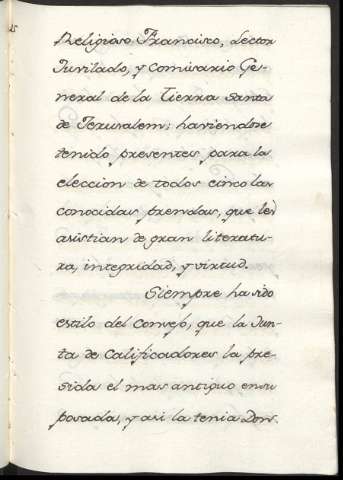 Religioso Francisco, Lector
Juvilado, y Comisario Ge-
neral de la Tierra Santa
de Jerusalem; haviendose
tenido presentes para la
eleccion de todos cinco las
conocidas prendas, que les
asistian de gran literatu-
ra, integridad, y virtud.
Siempre ha sido
estilo del consejo, que la Jun-
ta de Calificadores la pre-
sida el mas antiguo en su
posada, y asi la tenia Don